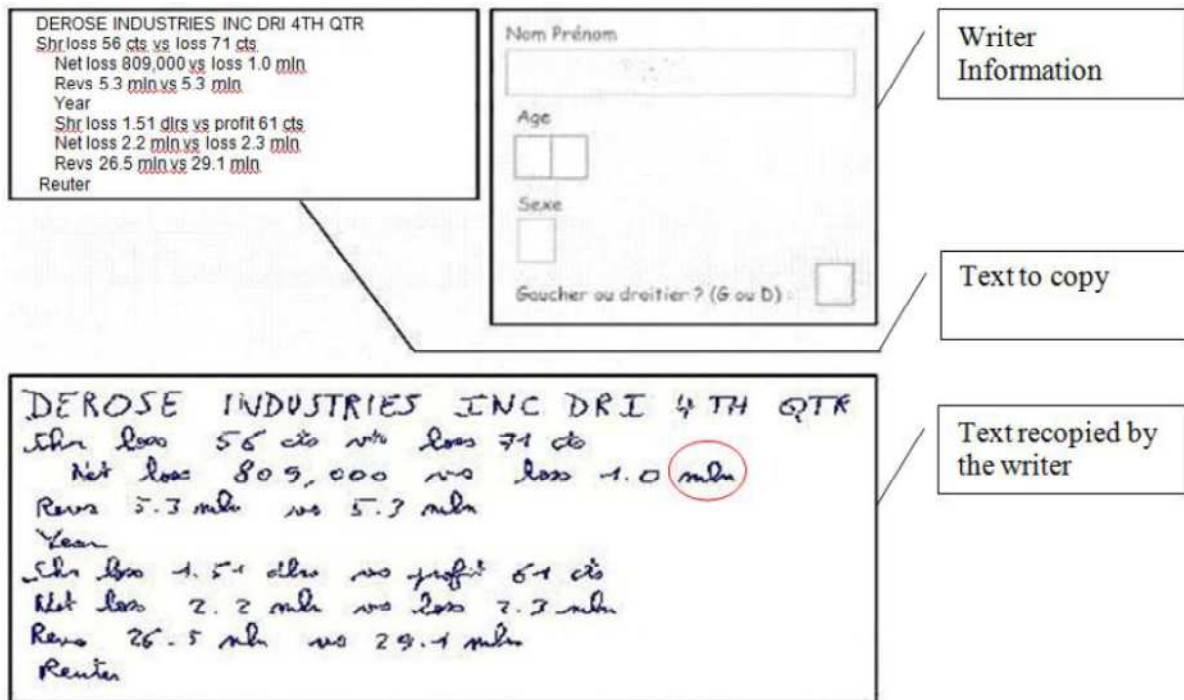 DEROSE INDUSTRIES INC DRI 4TH QTR
Shr loss 56 cts vs loss 71 cts
Net loss 809,000 vs loss 1.0 mln
Revs 5.3 mln vs 5.3 mln
Year
Shr loss 1.51 dlrs vs profit 61 cts
Net loss 2.2 mln vs loss 2.3 mln
Revs 26.5 mln vs 29.1 mln
Reuter
Nom Prénom
Age
Sexe
Gaucher ou droitier ? (G ou D) :
Writer
Information
Text to copy
DEROSE INDUSTRIES INC DRI 4TH QTR
Shr loss 56 cts vs loss 71 cts
Net loss 809,000 vs loss 1.0 mln
Revs 5.3 mln vs 5.3 mln
Year
Shr loss 1.51 dlrs vs profit 61 cts
Net loss 2.2 mln vs loss 2.3 mln
Revs 26.5 mln vs 29.1 mln
Reuter
Text recopied by
the writer